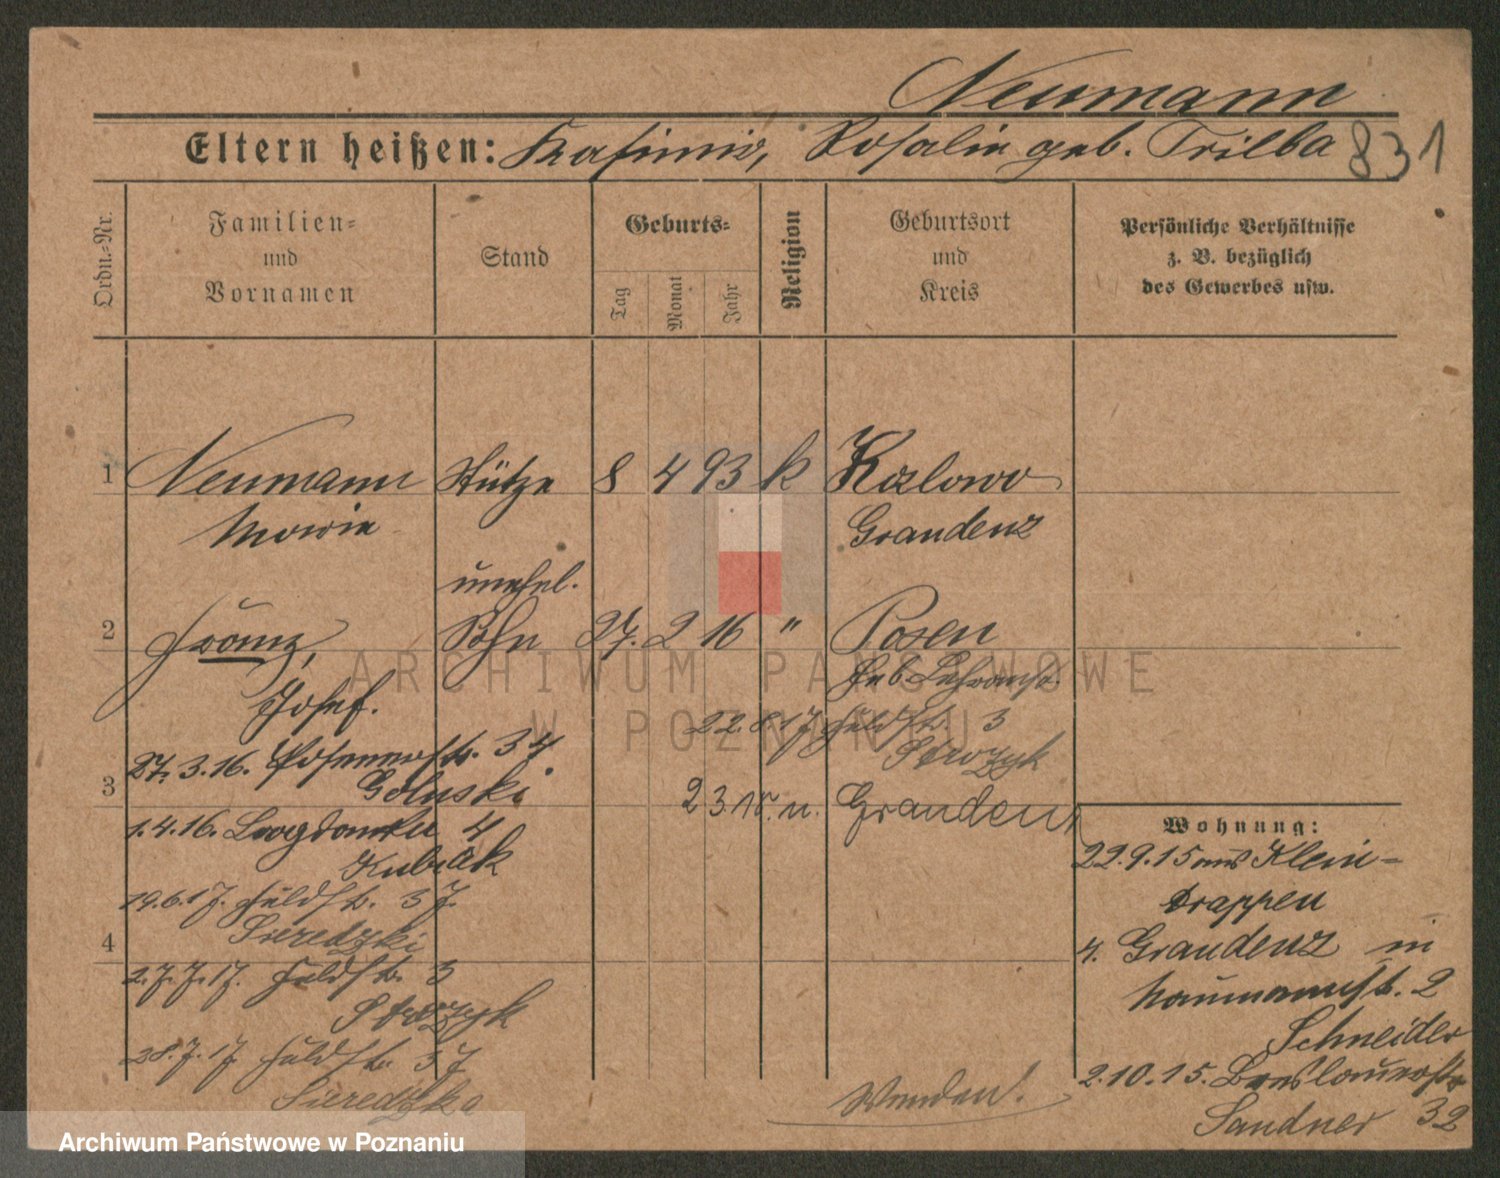 Neumann
Eltern heißen: Kasimir, Rosalie geb. Trilba 831
Ordn.-Nr.
Familien-
und
Vornamen
Stand
Geburts-
Tag
Monat
Jahr
Religion
Geburtsort
und
Kreis
Persönliche Verhältnisse
z. B. bezüglich
des Gewerbes usw.
1 Neumann Stütze 8 4 93 k Kozlowo
Maria Graudenz
unehel.
2 Franz, Sohn 27. 2 16 " Posen
Josef.
22.8.17 Feldstr. 3
Strozyk
27.3.16. Posenerstr. 34
Goluski
3 23.10. n. Graudenz
1.4.16. Bogdanka 4
Kubiak
19.6.17. Feldstr. 37.
Sieredzki
4
27.7.17. Feldstr. 3
Strozyk
28.7.17 Feldstr. 37
Sieredzka
Wenden!
Wohnung:
22.9.15 aus Klein-
Trappen
Kr. Graudenz in
Naumannstr. 2
Schneider
2.10.15. Breslauerstr
Sandner 32
ARCHIWUM PAŃSTWOWE
W POZNANIU
Archiwum Państwowe w Poznaniu